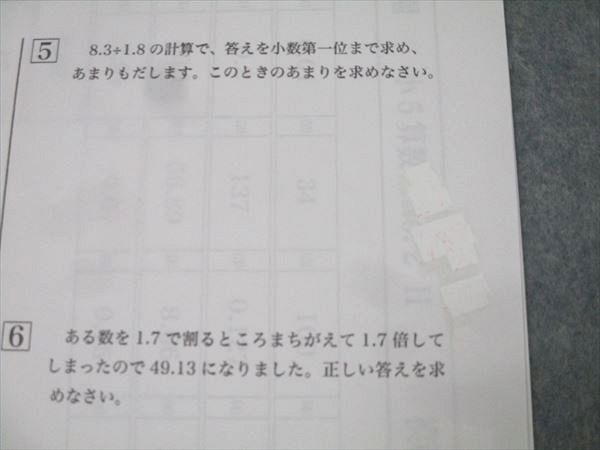 5 8.3÷1.8 の計算で、答えを小数第一位まで求め、
あまりもだします。このときのあまりを求めなさい。
6 ある数を 1.7 で割るところまちがえて 1.7 倍して
しまったので 49.13 になりました。正しい答えを求
めなさい。